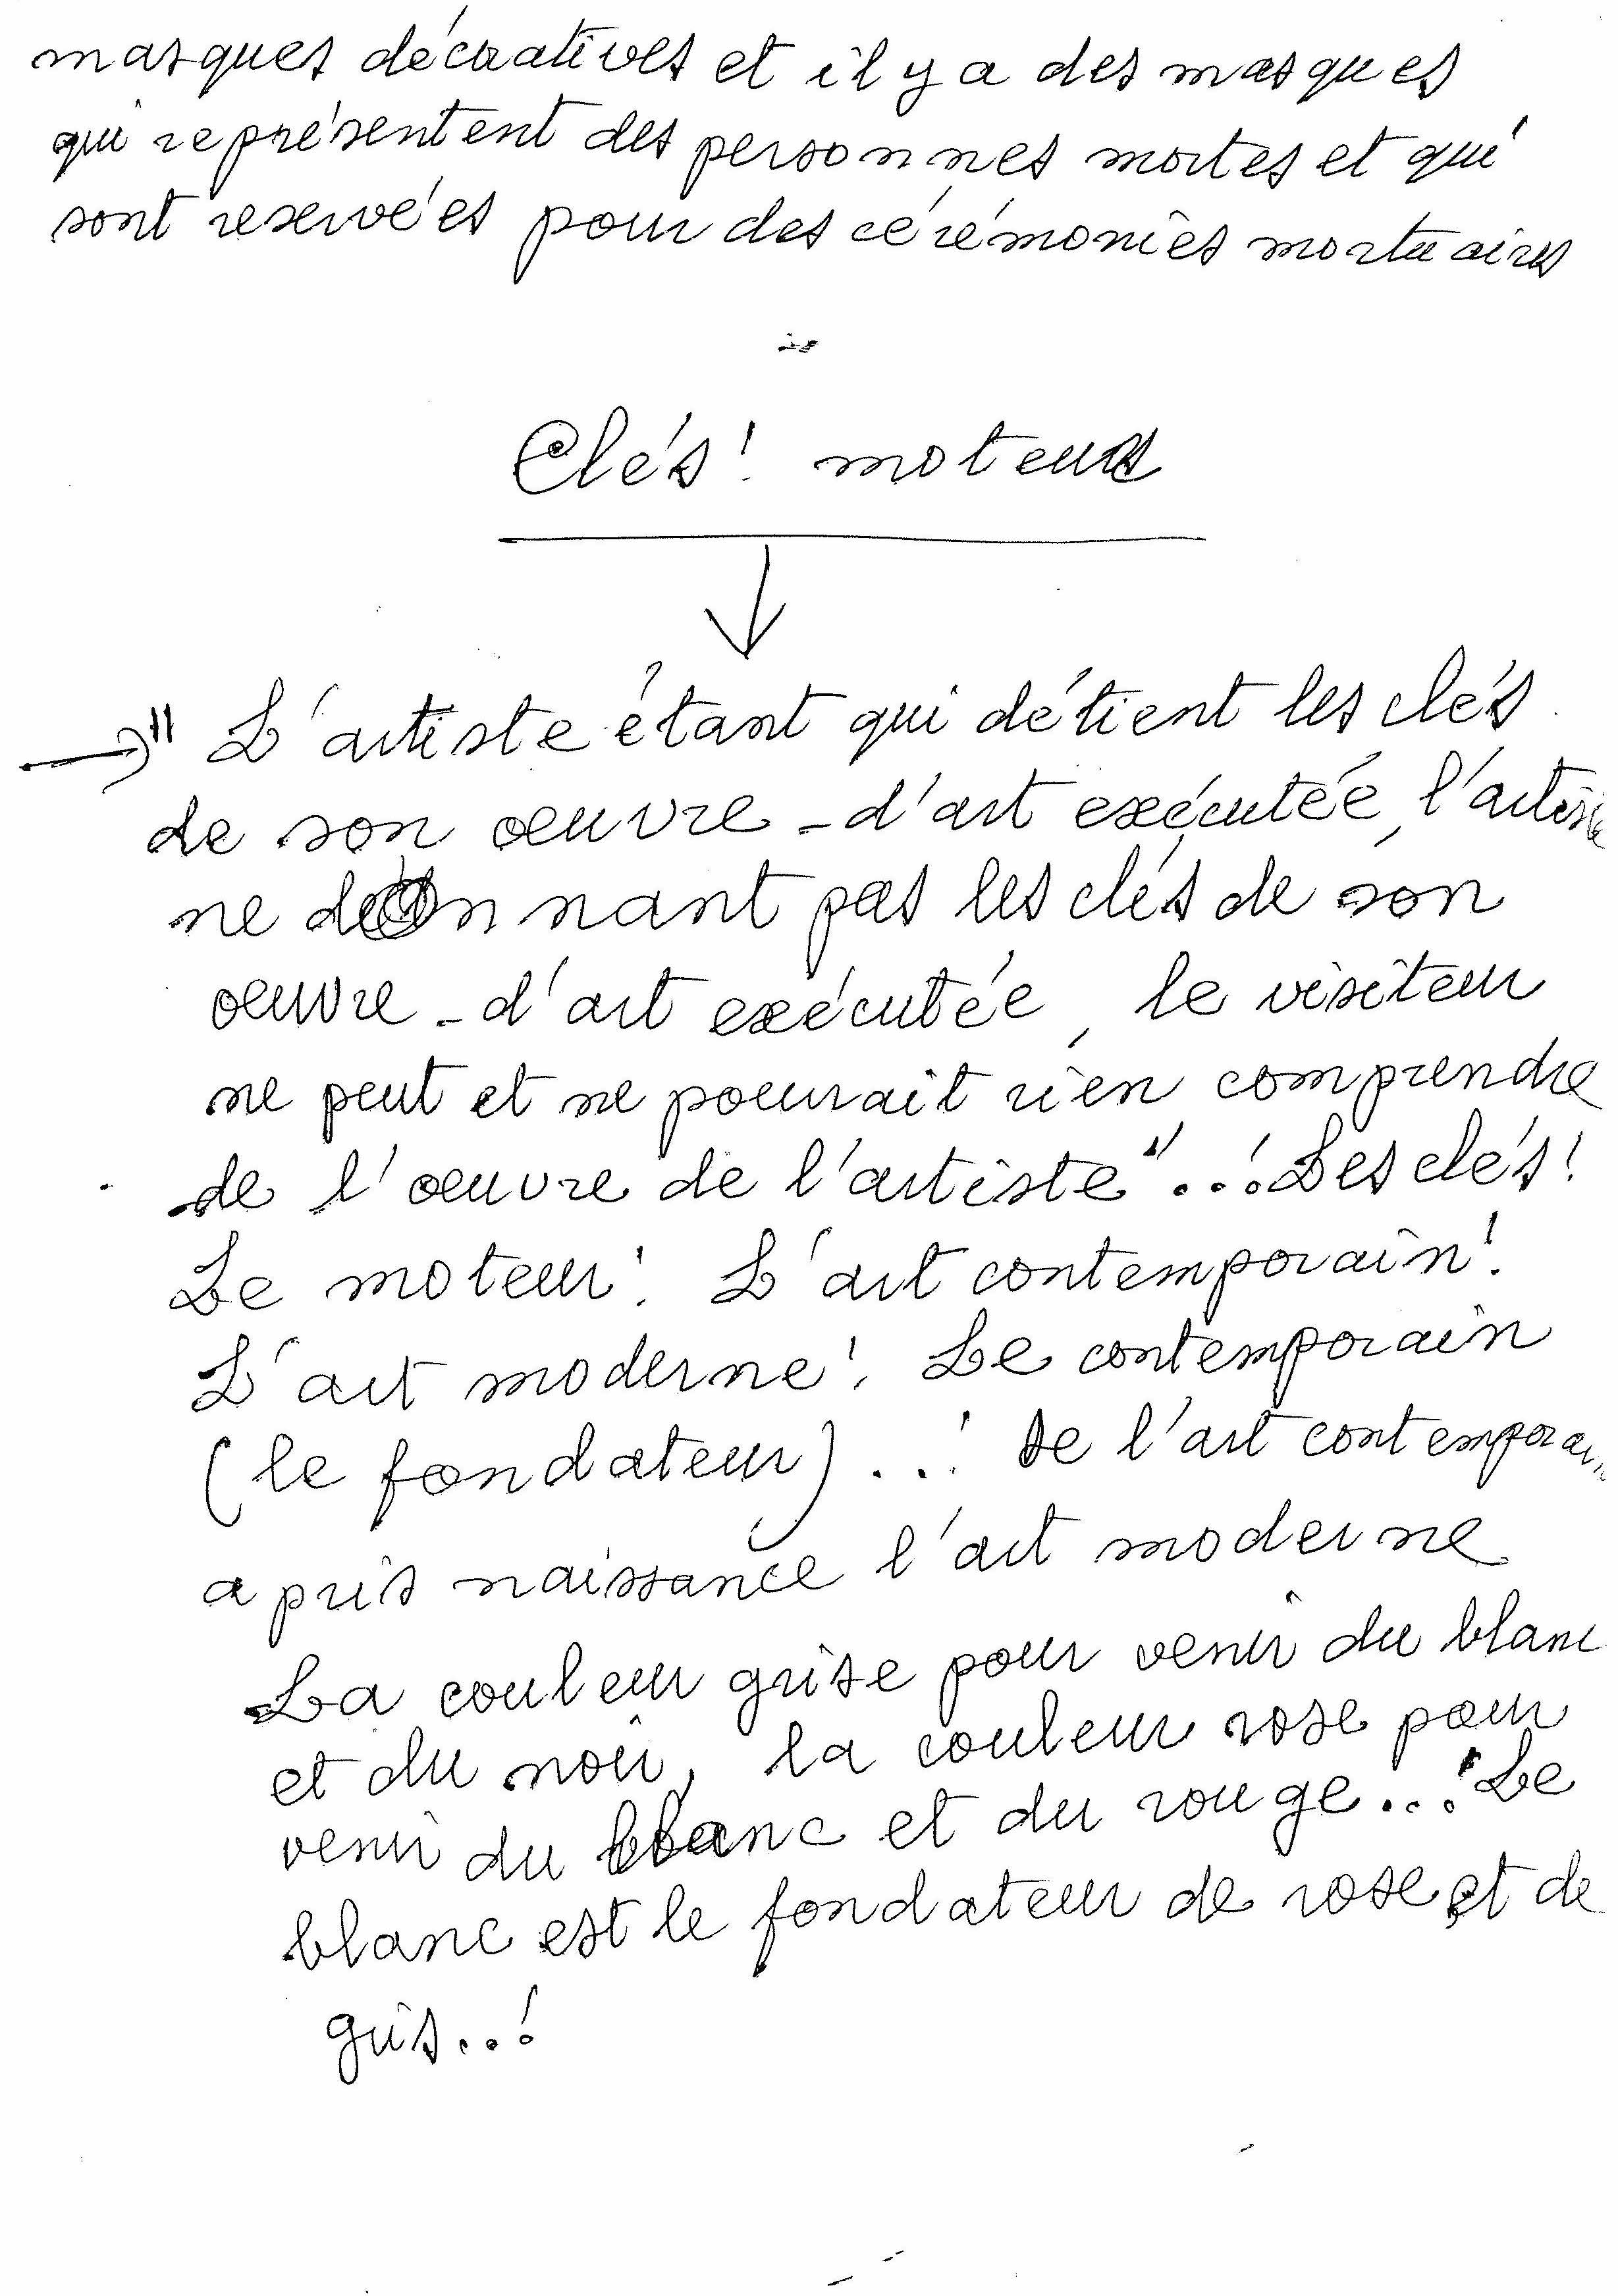 masques décoratives et il y a des masques
qui représentent des personnes mortes et qui
sont reservées pour des cérémonies mortuaires
Clés! moteurs
" L'artiste étant qui détient les clés
de son œuvre-d'art exécutée, l'artiste
ne donnant pas les clés de son
œuvre-d'art exécutée, le visiteur
ne peut et ne pourrait rien comprendre
de l'œuvre de l'artiste"..! Les clés!
Le moteur! L'art contemporain!
L'art moderne! Le contemporain
(le fondateur)..! De l'art contemporain
a pris naissance l'art moderne
La couleur grise pour venir du blanc
et du noir, la couleur rose pour
venir du blanc et du rouge...! Le
blanc est le fondateur de rose et de
gris..!